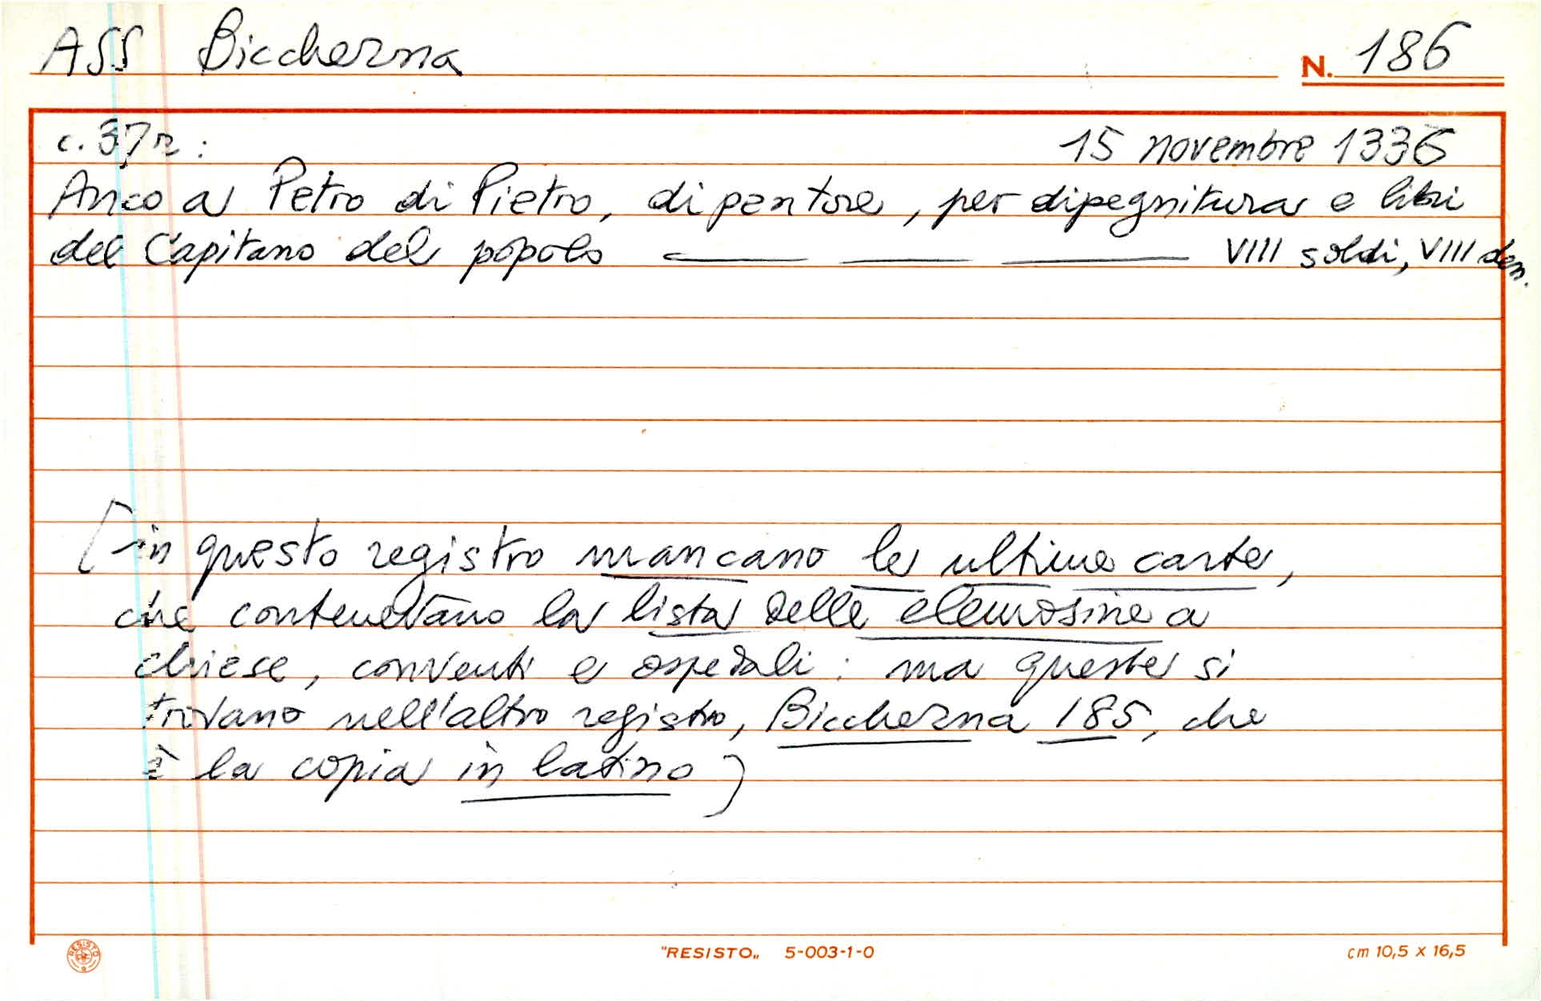 ASS Biccherna N. 186
c. 37r: 15 novembre 1336
Anco a Petro di Pietro, dipentore, per dipegnitura e libri
del Capitano del popolo VIII soldi, VIII den.
(in questo registro mancano le ultime carte,
che contenevano la lista delle elemosine a
chiese, conventi e ospedali: ma queste si
trovano nell'altro registro, Biccherna 185, che
è la copia in latino)
RESISTO
"RESISTO„ 5-003-1-0 cm 10,5 x 16,5